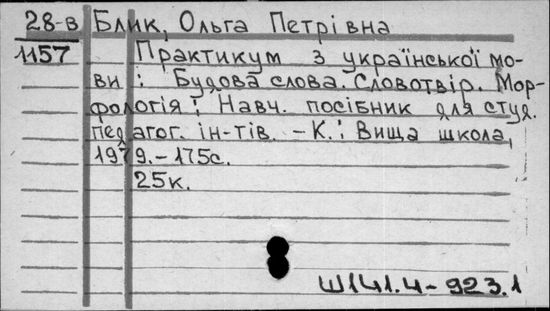 28-в Блик, Ольга Петрівна
1157 Практикум з української мо-
ви : Будова слова. Словотвір. Мор-
фологія : Навч. посібник для студ.
педагог. ін-тів. – К. : Вища школа,
1979. – 175с.
25к.
Ш141.4-923.1